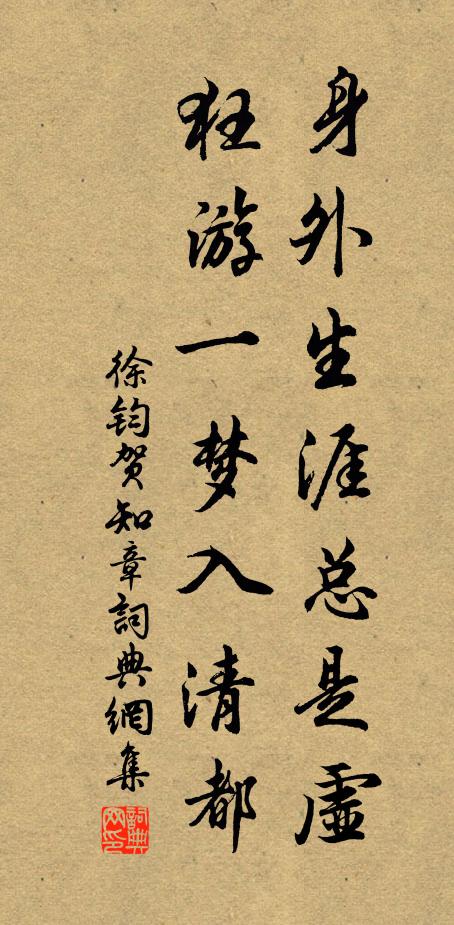 身外生涯总是虚
狂游一梦入清都
徐钧贺知章詞典網集
詞典网印